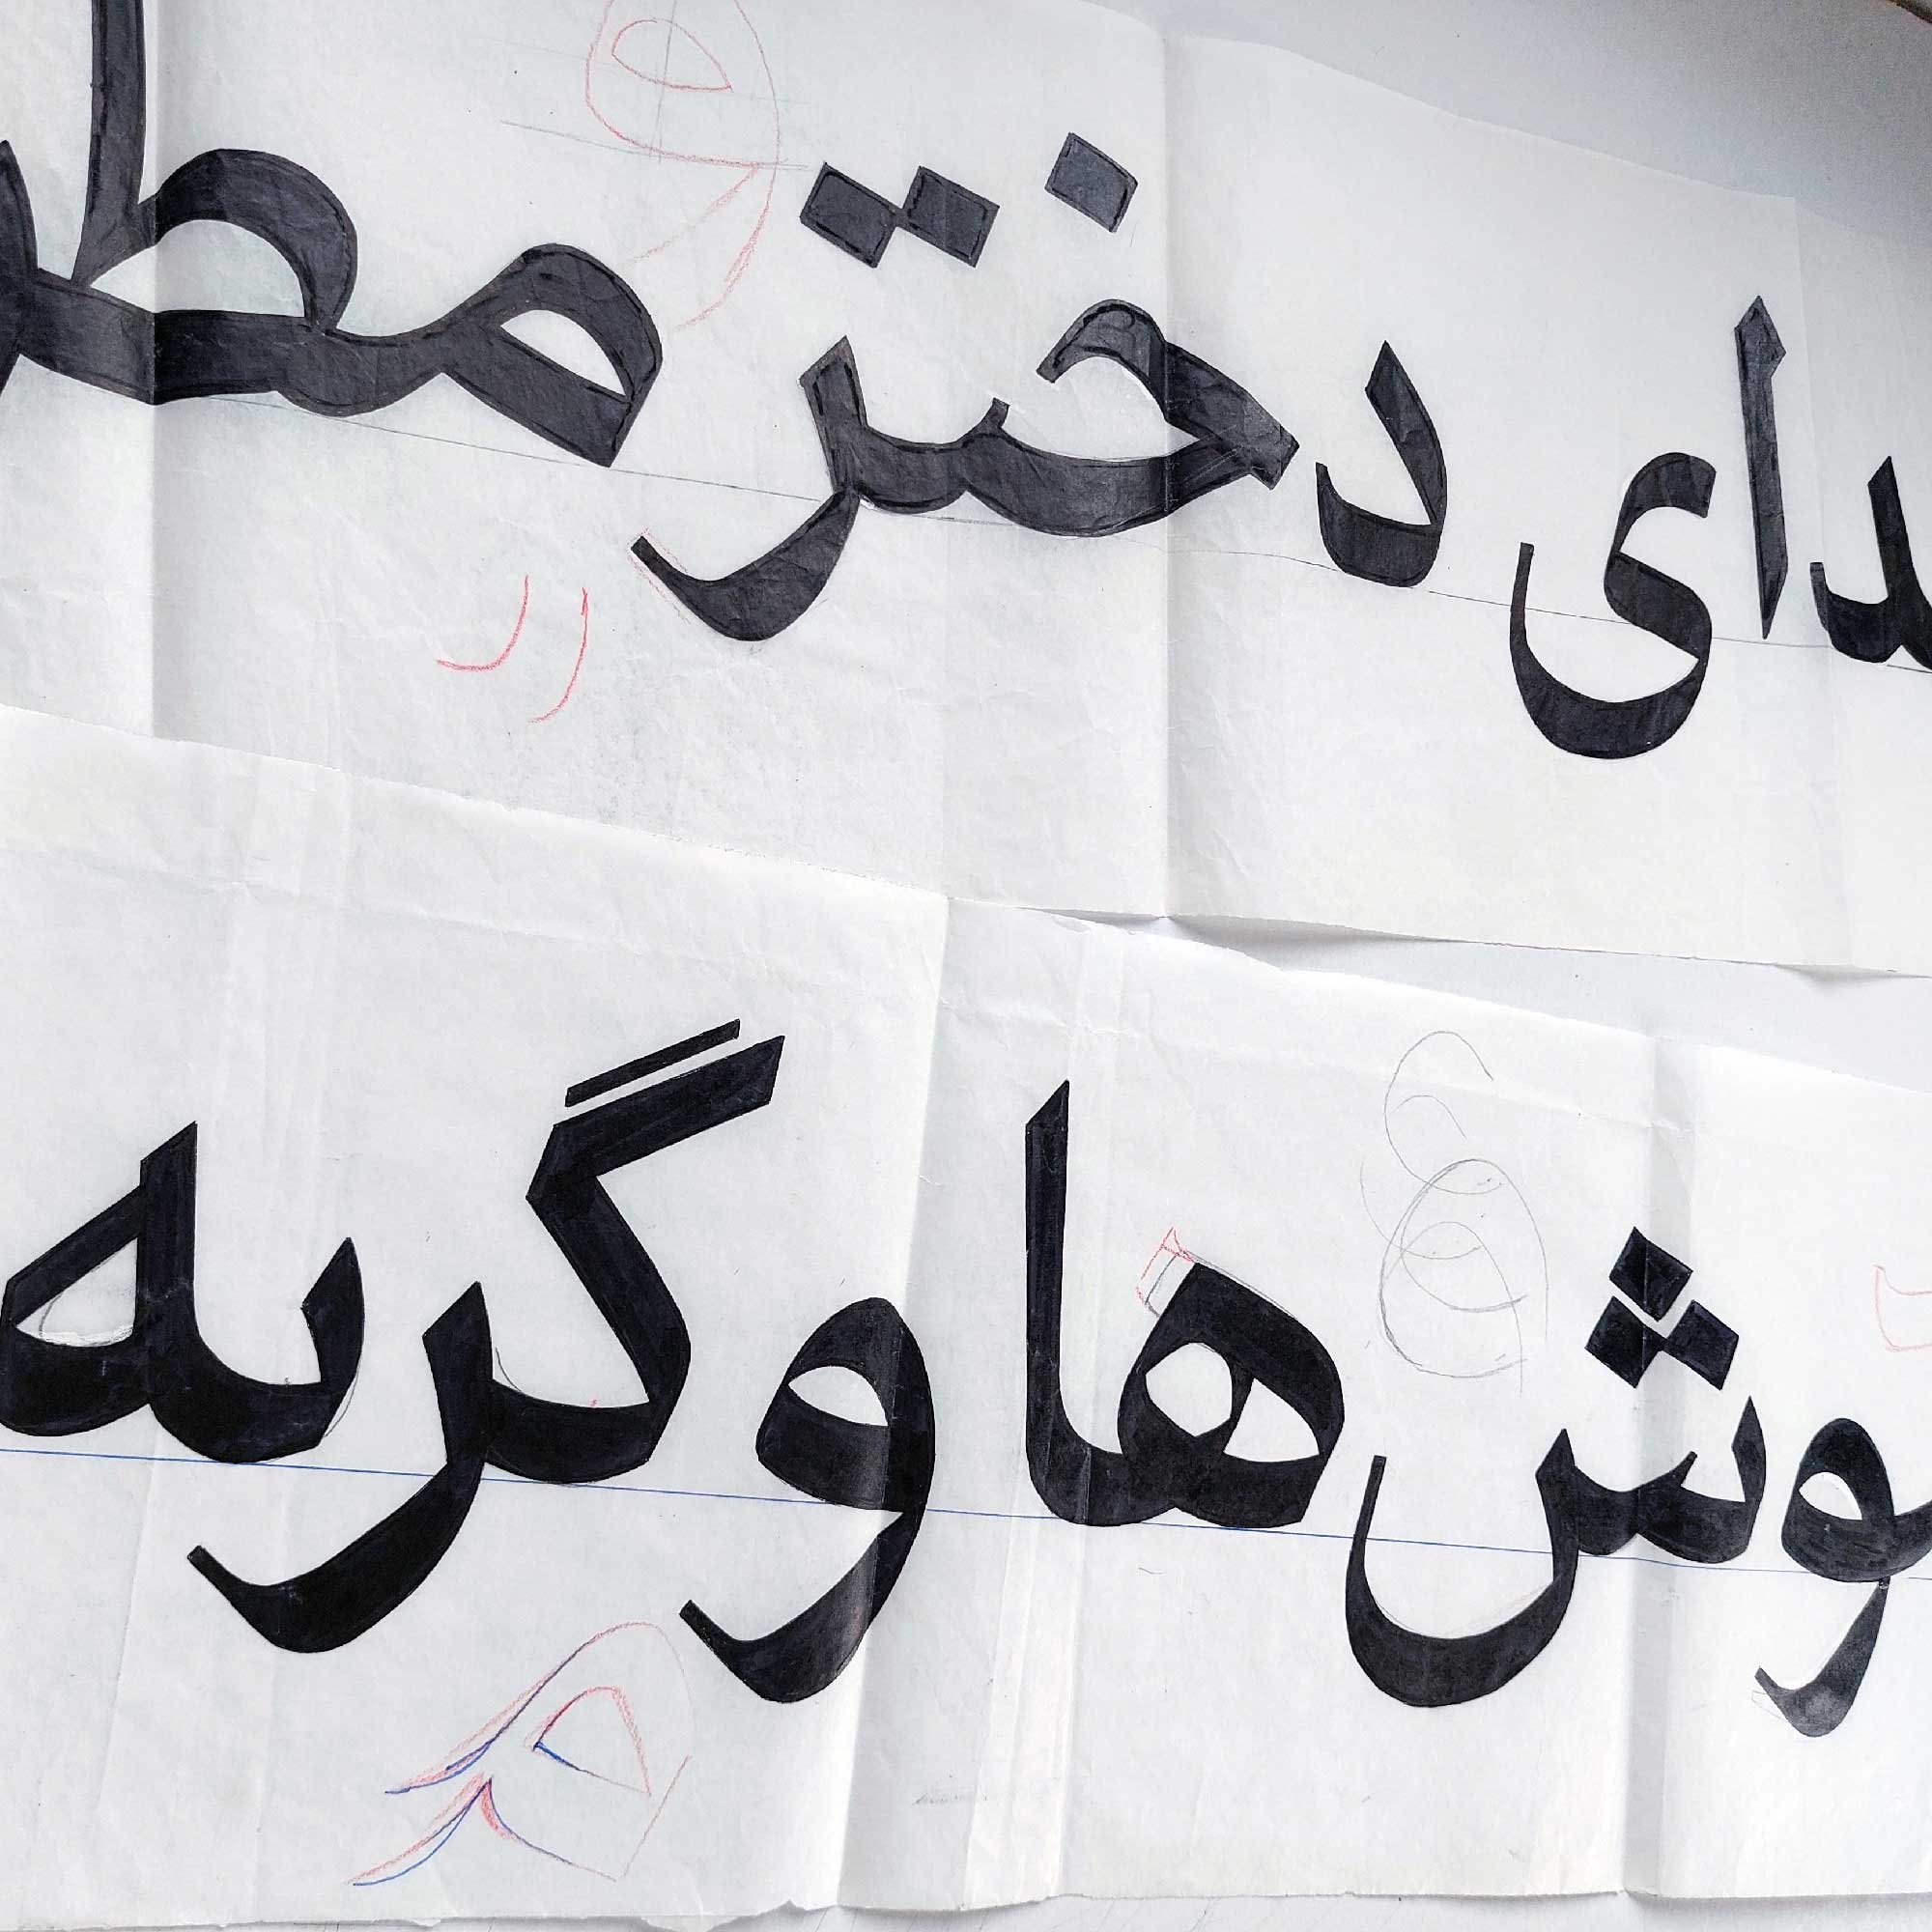 دای دختر مط
وش‌ها و گربه